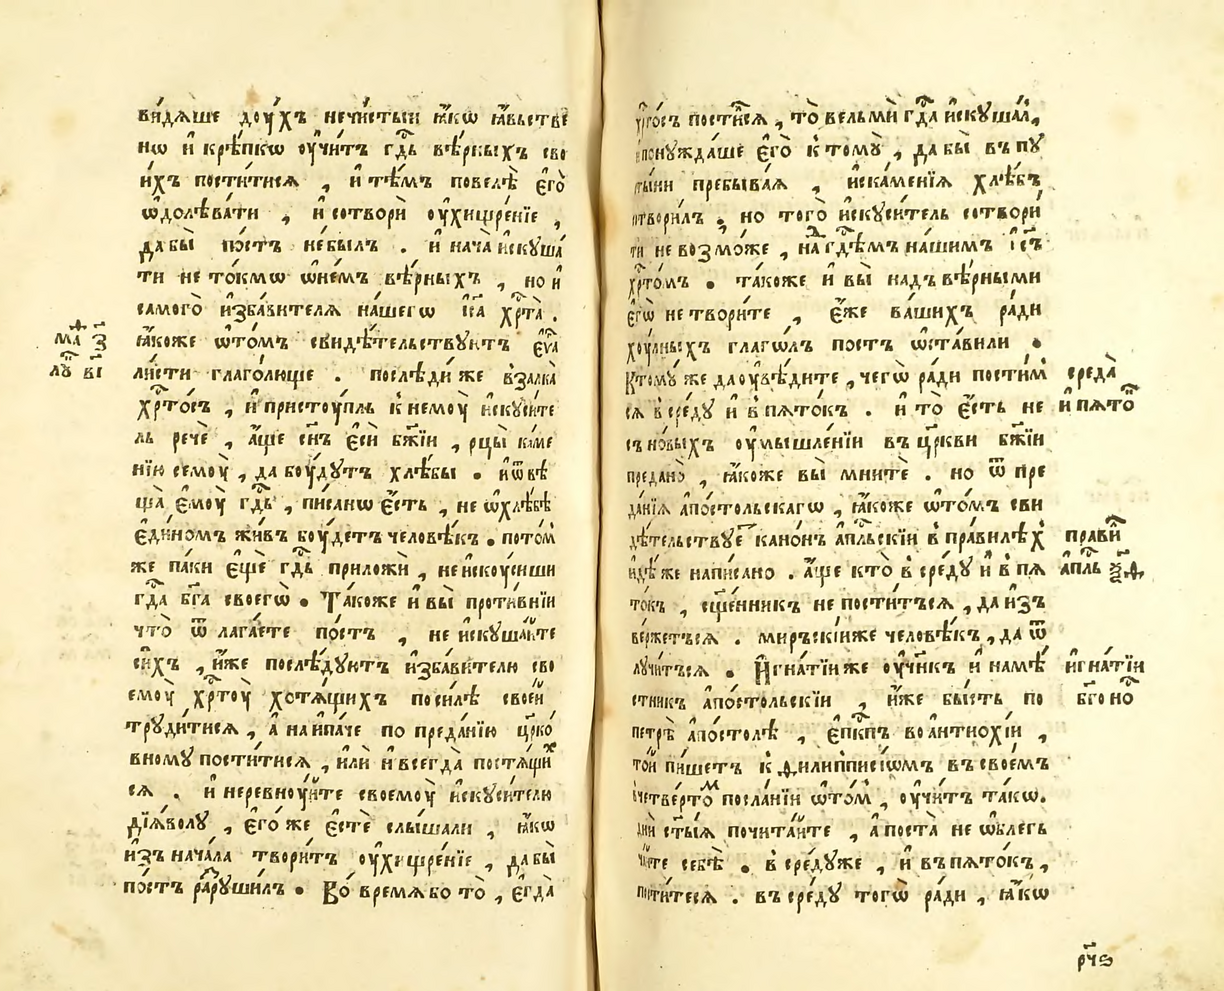 ви́дѧше доу́хъ нечи́стыи ꙗ҆́кѡ ꙗ҆́вьстве
нѡ и҆ крѣ́пкѡ оу҆чи́тъ гдⷭ҇ь вѣ́рныхъ сво
и́хъ пости́тисѧ , и҆ тѣ́мъ повелѣ̀ є҆го̀
ѡ҆долѣва́ти , и҆ сотворѝ оу҆хищре́нїе ,
да бы̀ по́стъ не бы́лъ . и҆ нача̀ и҆скуша́
ти не то́кмѡ ѡ҆не́мъ вѣ́рныхъ , но и҆
самого̀ и҆зба́вителѧ на́шегѡ і҆с҃а хрⷭ҇та̀ .
ꙗ҆́коже ѡ҆то́мъ свидѣ́тельствуютъ є҆ѵⷢ҇а
ли́сти глаго́люще . послѣди́ же взалка̀
хрⷭ҇то́съ , и҆ пристоу́пль к немоу̀ и҆скуси́те
ль речѐ , а҆́ще сн҃ъ є҆сѝ бж҃їи , рцы̀ ка́ме
нїю семоу̀ , да боу́дутъ хлѣ́бы . и҆ ѿвѣ
ща̀ є҆моу̀ гдⷭ҇ь , пи́санѡ є҆́сть , не ѡ҆ хлѣ́бѣ
є҆ди́номъ жи́въ боу́детъ человѣ́къ . пото́м
же па́ки є҆щѐ гдⷭ҇ь приложѝ , не и҆скоу́сиши
гдⷭ҇а бг҃а своегѡ̀ . Та́коже и҆ вы̀ проти́внїи
что̀ ѿ лага́ете по́стъ , не и҆скуша́ите
си́хъ , и҆́же послѣ́дуютъ и҆зба́вителю сво
емоу̀ хрⷭ҇тоу̀ хотѧ́щихъ по си́лѣ свое́й
труди́тисѧ , а҆ наипа́че по преда́нїю цр҃ко́
вному пости́тисѧ , и҆лѝ и҆ всегда̀ постѧ́щиⷯ
сѧ . и҆ неревноу́йте своемоу̀ и҆скуси́телю
дїѧ́волу , є҆го́же є҆стѐ слы́шали , ꙗ҆́кѡ
и҆зъ нача́ла твори́тъ оу҆хищре́нїе , да бы̀
по́стъ разⷣруши́лъ . Во̀ времѧ бо то̀ , є҆гда̀
маⷴ҇ з҃і
лꙋ вⷤ҇і
хрⷭ҇то́съ пости́сѧ , то̀ вельмѝ гдⷭ҇а и҆скуша́л ,
и҆ понужда́ше є҆го̀ к тому̀ , да бы̀ въ пу
сты́ни пребыва́ѧ , и҆скаме́нїѧ хлѣ́бъ
сотвори́лъ , но того̀ и҆скуси́тель сотвори́
ти не возмо́же , наⷣ гдⷭ҇емъ на́шимъ і҆с҃ъ
хрⷭ҇то́мъ . та́коже и҆ вы̀ надъ вѣ́рными
є҆гѡ̀ не твори́те , є҆́же ва́шихъ ра́ди
хоу́льныхъ глагѡ́лъ по́стъ ѡ҆ста́вили .
Ктому́ же да оу҆вѣ́дите , чегѡ̀ ра́ди пости́м
сѧ в сре́ду и҆ в пѧто́къ . и҆ то̀ є҆́сть не
съ но́выхъ оу҆мышле́нїи въ цр҃кви бж҃їи
предано̀ , ꙗ҆́коже вы̀ мнитѐ . но ѿ пре
да́нїѧ а҆по́стольскагѡ , ꙗ҆́коже ѡ҆то́мъ сви
дѣ́тельствуеⷮ кано́нъ а҆пⷭ҇льскїи в пра́вилѣх
идѣ́же напи́сано . а҆́ще кто̀ в сре́ду и҆ в пѧ
то́къ , сщ҃е́нникъ не пости́тъсѧ , да и҆́зъ
ве́ржетьсѧ . ми́рьскїиже человѣ́къ , да ѿ
лучи́тьсѧ . И҆гна́тїи же оу҆чн҃и́къ и҆ намѣ̀
стникъ а҆по́стольскїи , и҆́же бы́сть по
петрѣ̀ а҆по́столѣ , є҆пⷭ҇кпъ во а҆нтиохі́и ,
то́й пи́шетъ к филипписі́ѡмъ въ свое́мъ
четве́ртоⷨ посла́нїи ѡ҆то́м , оу҆чи́тъ та́кѡ .
днѝ ст҃ы́ѧ почита́йте , а҆ поста̀ не ѡ҆блегъ
ча́йте себѣ̀ . в сре́дуже , и҆ въ пѧто́къ ,
пости́тесѧ . въ сре́ду тогѡ̀ ра́ди , ꙗ҆́кѡ
среда̀
и҆ пѧтоⷦ҇
прави̾
а҆пл҃ъ ѯ҃ѳ
и҆гна́тїи
бг҃оно́
рч҃ѕ